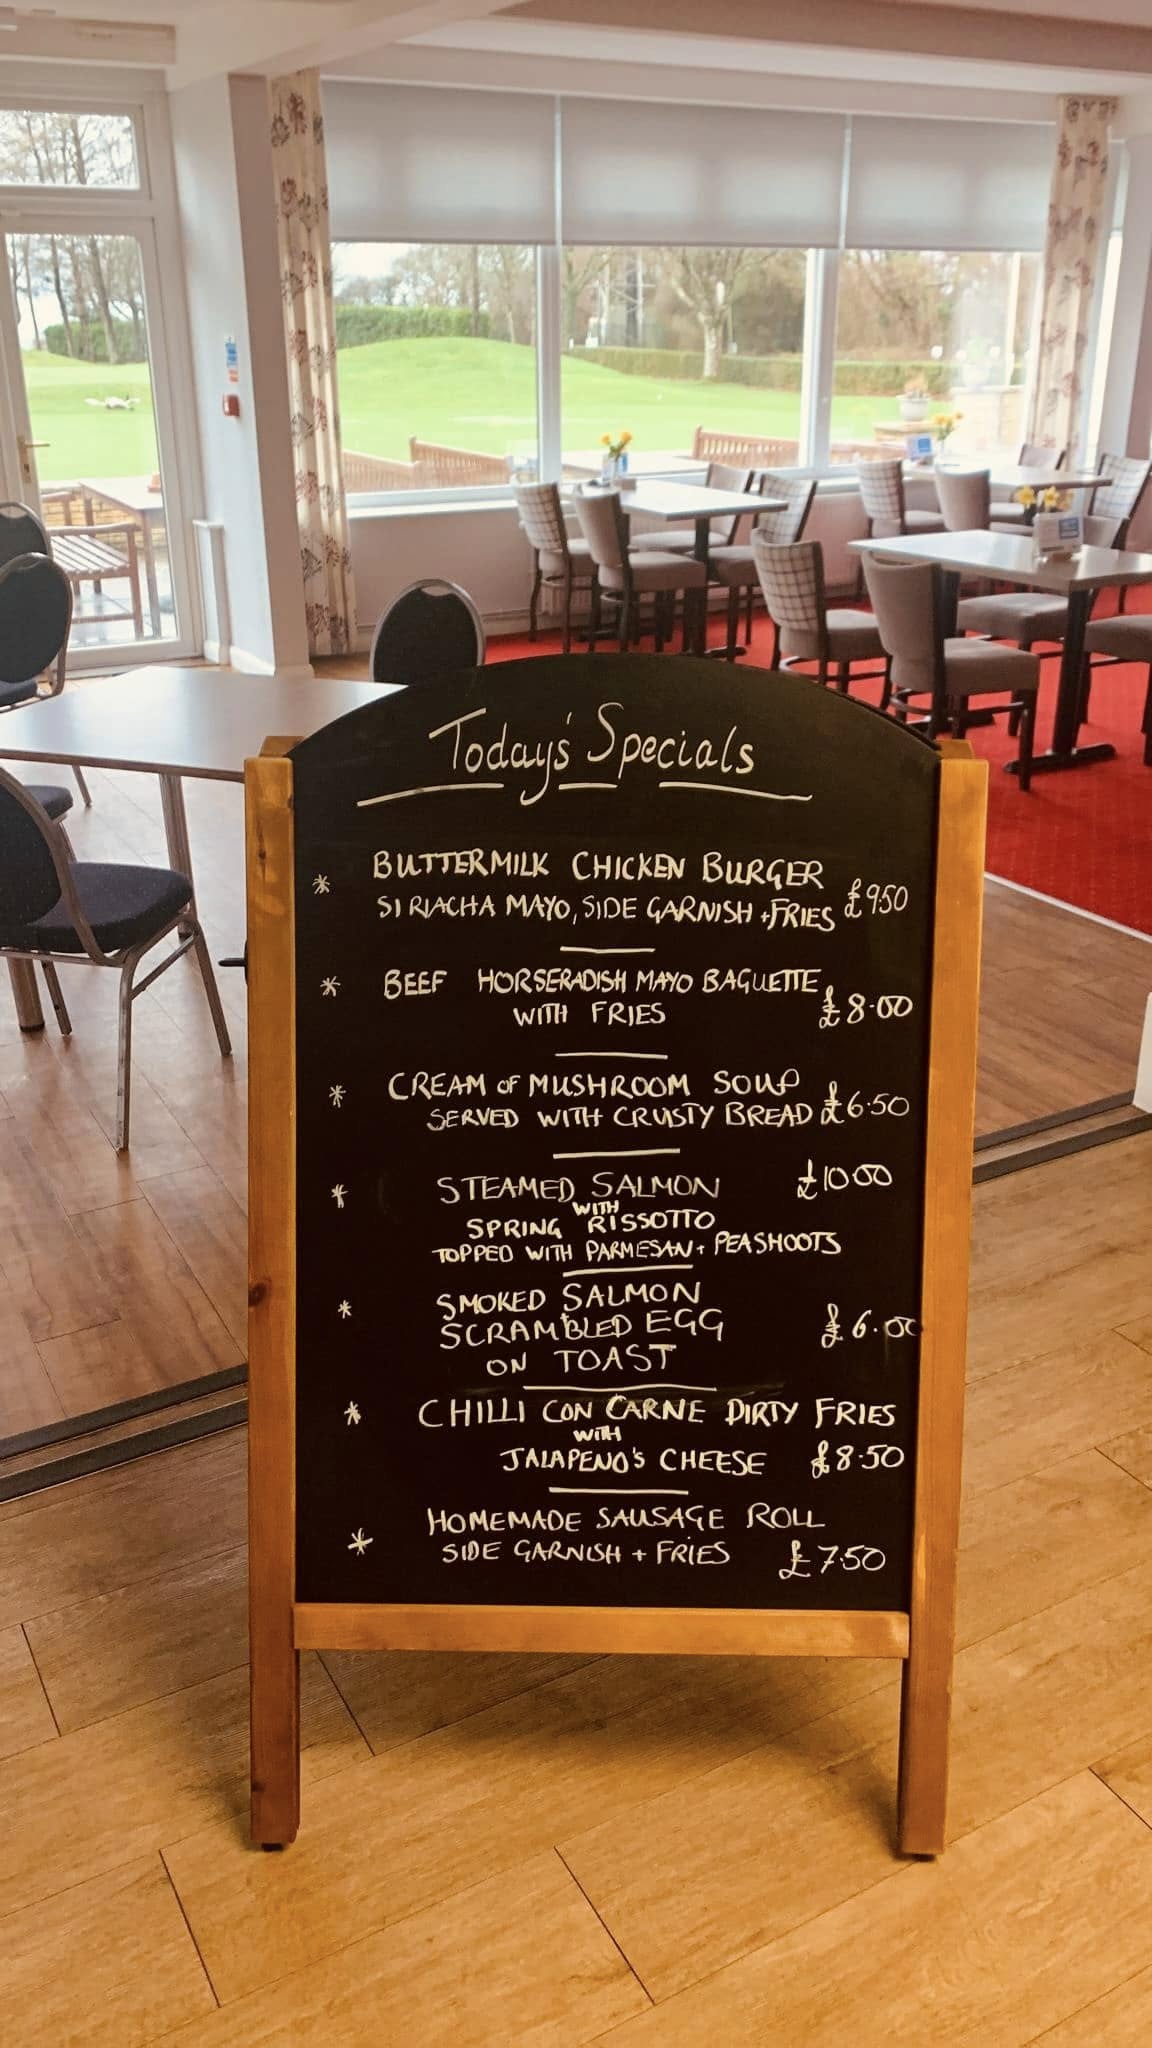 Today's Specials
* BUTTERMILK CHICKEN BURGER
SIRIACHA MAYO, SIDE GARNISH + FRIES £950
* BEEF HORSERADISH MAYO BAGUETTE
WITH FRIES £8.00
* CREAM OF MUSHROOM SOUP
SERVED WITH CRUSTY BREAD £6.50
* STEAMED SALMON £1000
WITH
SPRING RISSOTTO
TOPPED WITH PARMESAN + PEASHOOTS
* SMOKED SALMON
SCRAMBLED EGG £6.00
ON TOAST
* CHILLI CON CARNE DIRTY FRIES
WITH
JALAPENO'S CHEESE £8.50
HOMEMADE SAUSAGE ROLL
* SIDE GARNISH + FRIES £7.50